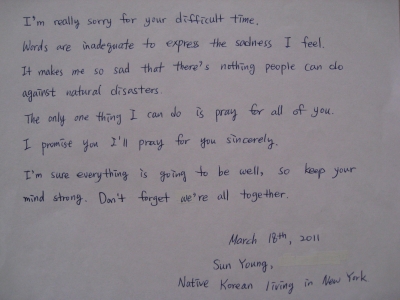 I'm really sorry for your difficult time.
Words are inadequate to express the sadness I feel.
It makes me so sad that there's nothing people can do
against natural disasters.
The only one thing I can do is pray for all of you.
I promise you I'll pray for you sincerely.
I'm sure everything is going to be well, so keep your
mind strong. Don't forget we're all together.
March 18th, 2011
Sun Young,
Native Korean living in New York